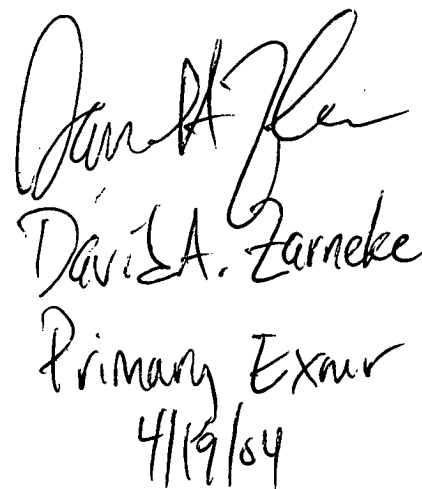 David A. Zarneke
Primary Exmr
4/19/04